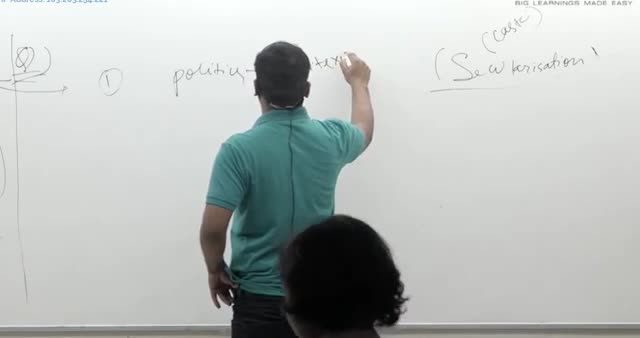 IP Address:103.203.254.221
BIG LEARNINGS MADE EASY
(Q)
① politics-
(caste)
(Secularisation)